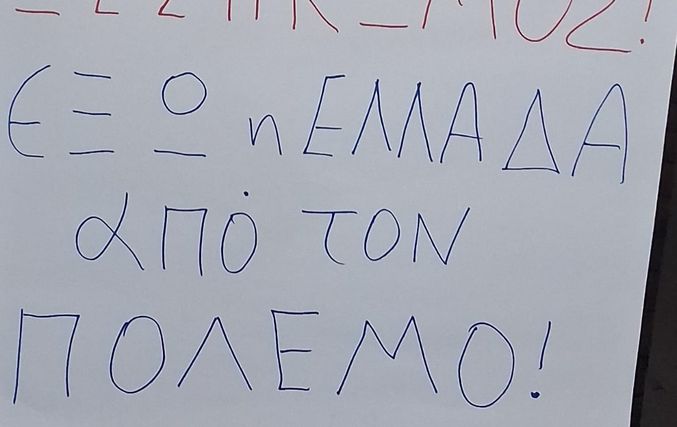 ΕΞΩ η ΕΛΛΑΔΑ
αΠό ΤΟΝ
ΠΟΛΕΜΟ!